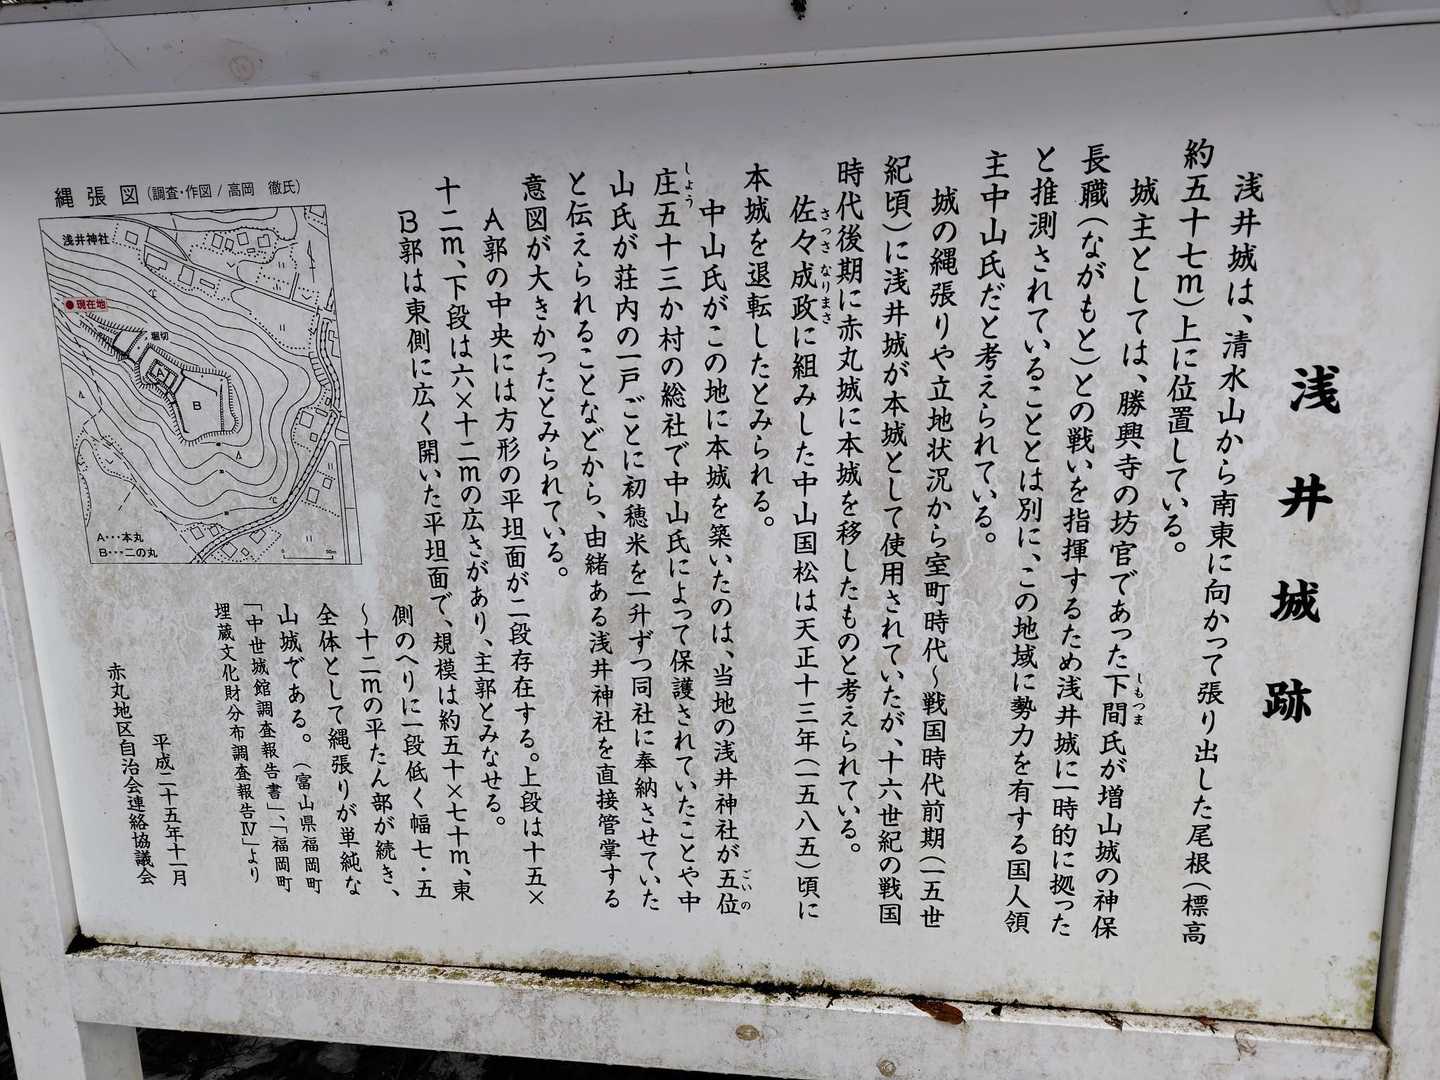 浅井城跡
浅井城は、清水山から南東に向かって張り出した尾根(標高
約五十七m)上に位置している。
城主としては、勝興寺の坊官であった下間氏が増山城の神保
しもつま
長職(ながもと)との戦いを指揮するため浅井城に一時的に拠った
と推測されていることとは別に、この地域に勢力を有する国人領
主中山氏だと考えられている。
城の縄張りや立地状況から室町時代～戦国時代前期(一五世
紀頃)に浅井城が本城として使用されていたが、十六世紀の戦国
時代後期に赤丸城に本城を移したものと考えられている。
佐々成政に組みした中山国松は天正十三年(一五八五)頃に
さっさ なりまさ
本城を退転したとみられる。
中山氏がこの地に本城を築いたのは、当地の浅井神社が五位
ごいの
庄五十三か村の総社で中山氏によって保護されていたことや中
しょう
山氏が荘内の一戸ごとに初穂米を一升ずつ同社に奉納させていた
と伝えられることなどから、由緒ある浅井神社を直接管掌する
意図が大きかったとみられている。
A郭の中央には方形の平坦面が二段存在する。上段は十五×
十二m、下段は六×十二mの広さがあり、主郭とみなせる。
B郭は東側に広く開いた平坦面で、規模は約五十×七十m、東
側のへりに一段低く幅七・五
～十二mの平たん部が続き、
全体として縄張りが単純な
山城である。(富山県福岡町
「中世城館調査報告書」、「福岡町
埋蔵文化財分布調査報告Ⅳ」より
平成二十五年十一月
赤丸地区自治会連絡協議会
縄張図(調査・作図/高岡 徹氏)
浅井神社
●現在地
堀切
A
B
A・・・本丸
B・・・二の丸
0 50m